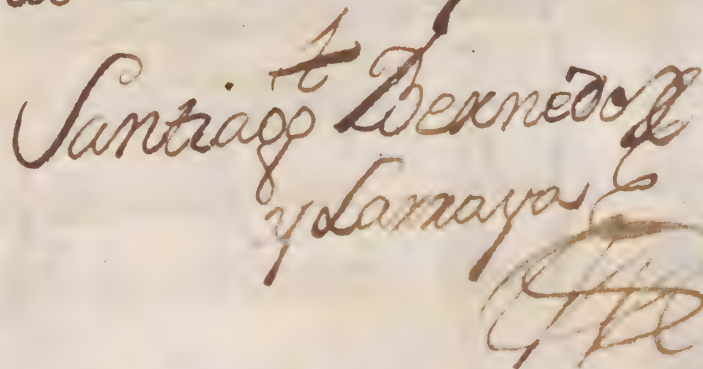 Santiago Bernedo
y Larraya